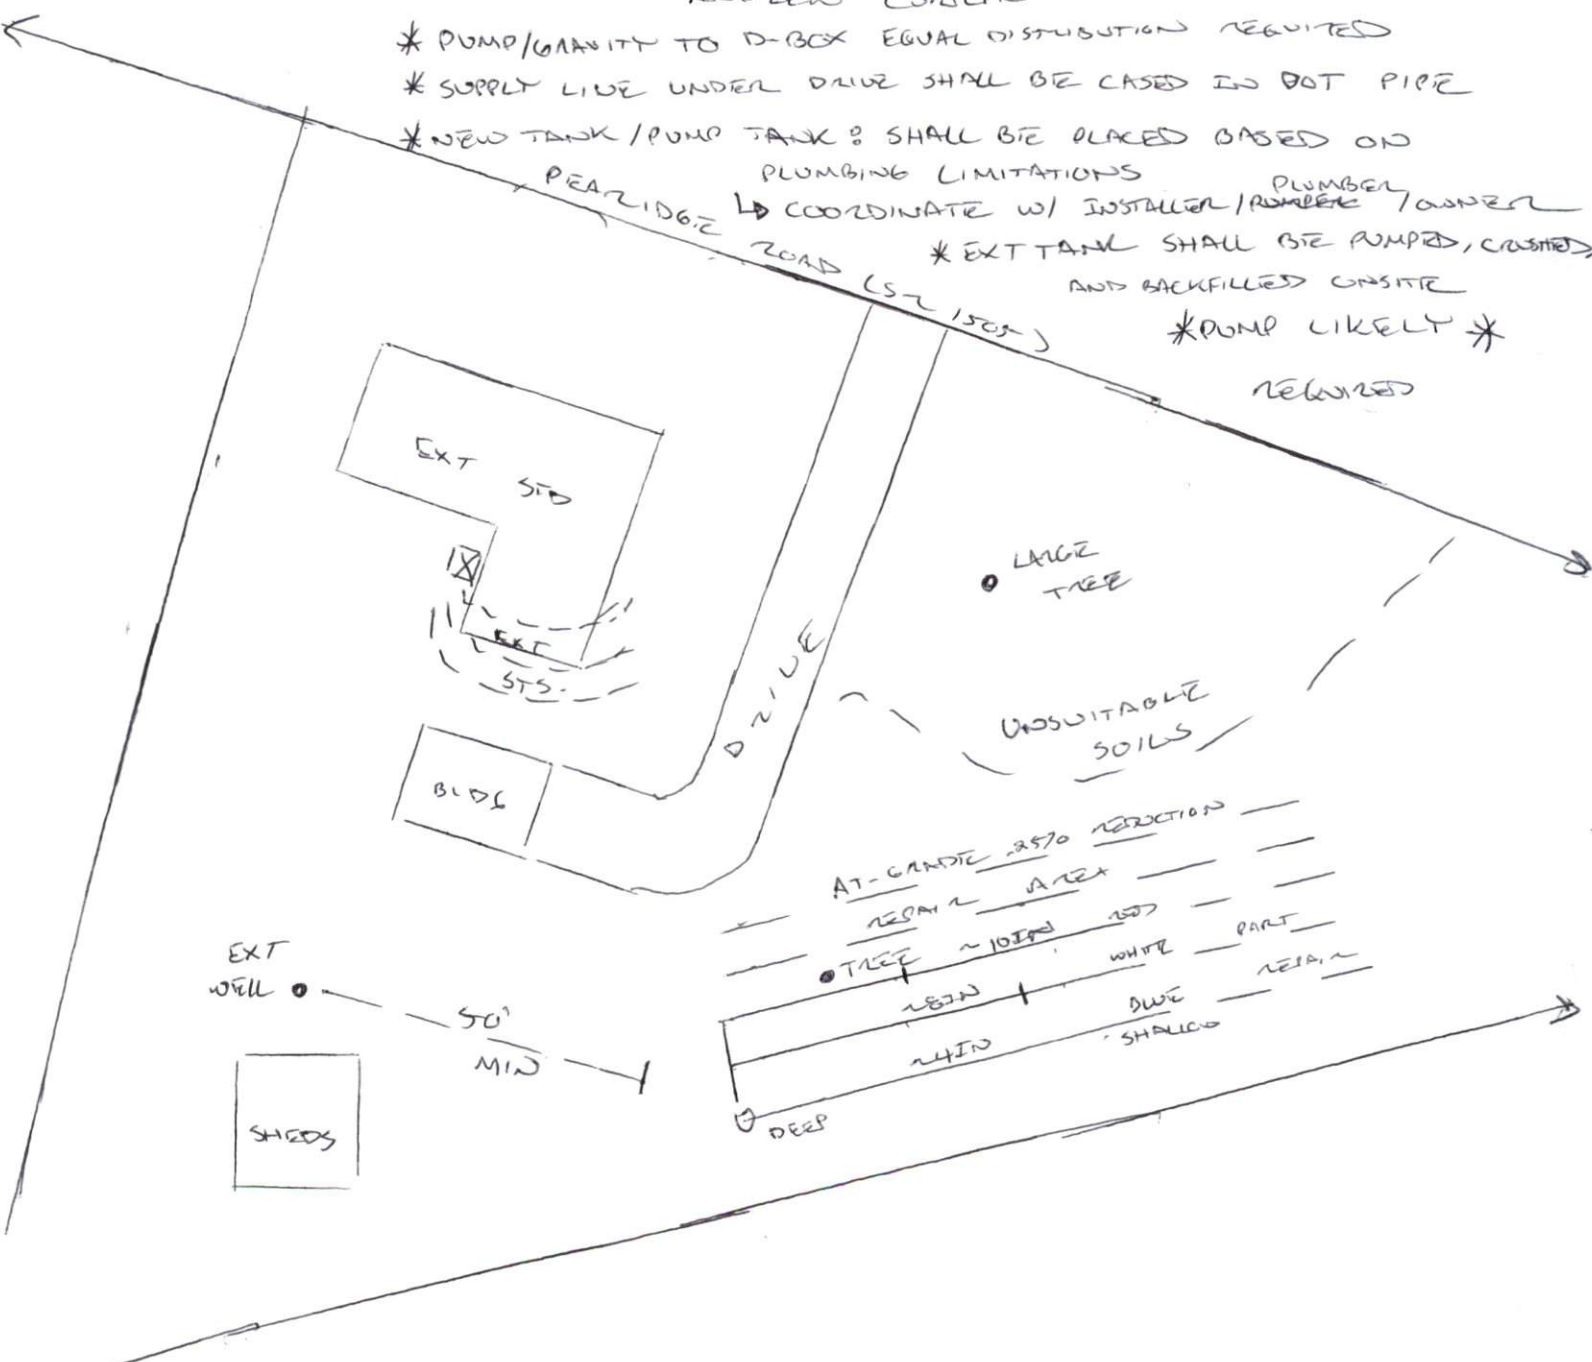 * PUMP/GRAVITY TO D-BOX EQUAL DISTRIBUTION REQUIRED
* SUPPLY LINE UNDER DRIVE SHALL BE CASED IN DOT PIPE
* NEW TANK/PUMP TANK: SHALL BE PLACED BASED ON
PLUMBING LIMITATIONS
PLUMBER
↳ COORDINATE W/ INSTALLER/ /OWNER
* EXT TANK SHALL BE PUMPED, CRUSHED,
AND BACKFILLED ONSITE
* PUMP LIKELY *
REQUIRED
PEA RIDGE ROAD (SR 1505)
EXT
LARGE
TREE
EXT
STS.
DRIVE
UNSUITABLE
SOILS
BLDG
AT-GRADE 25% REDUCTION
REPAIR AREA
TREE ~10IN RED
~8IN WHITE PART
REPAIR
~4IN BLUE
SHALLOW
DEEP
EXT
WELL
50'
MIN
SHEDS